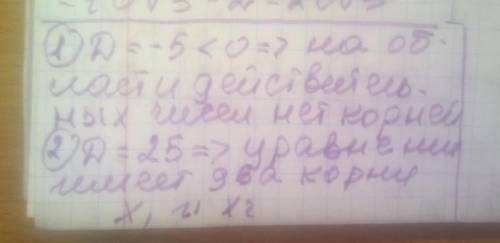 ① D = -5 < 0 => на об-
ласти действитель-
ных чисел нет корней
② D = 25 => уравнении
имеет два корня
x₁ и x₂